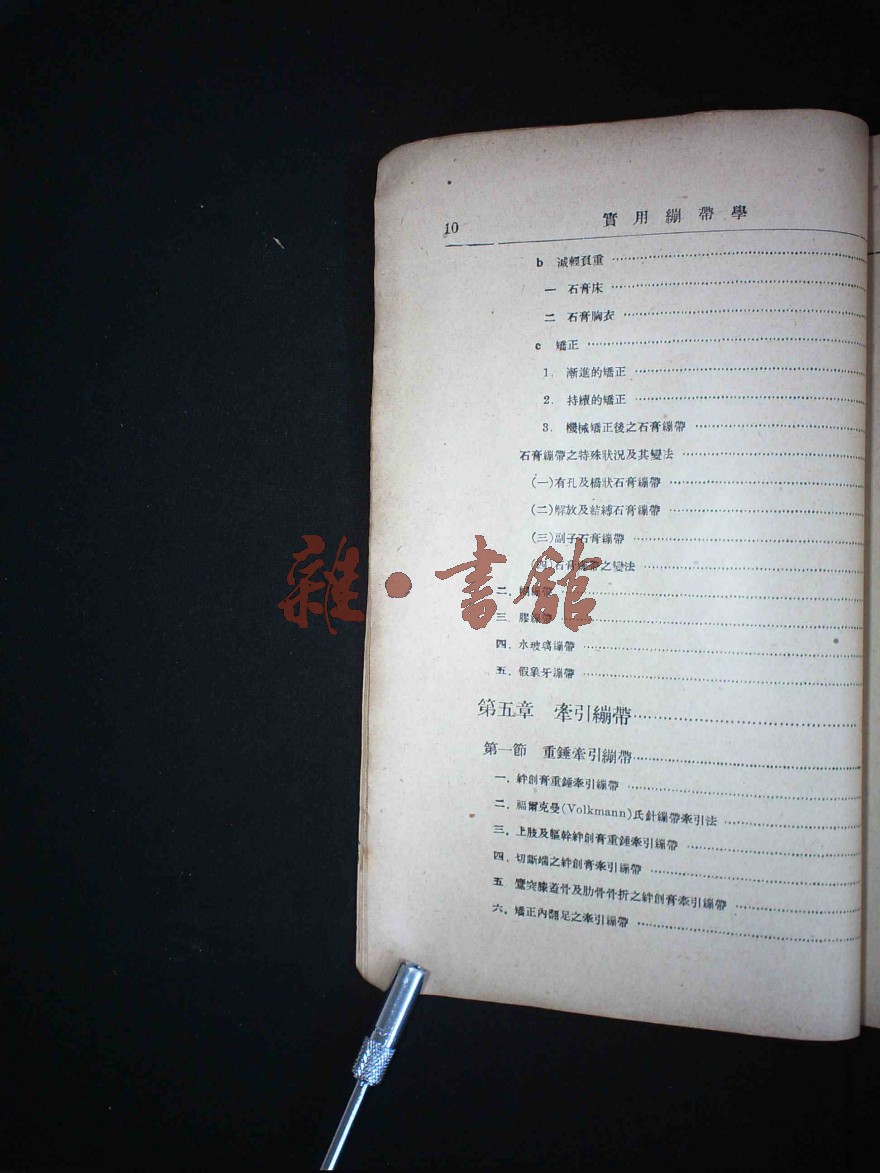 10 實用繃帶學
b 減輕負重
一 石膏床
二 石膏胸衣
c 矯正
1. 漸進的矯正
2. 持續的矯正
3. 機械矯正後之石膏繃帶
石膏繃帶之特殊狀況及其變法
(一)有孔及橋狀石膏繃帶
(二)解放及結縛石膏繃帶
(三)副子石膏繃帶
(四)石膏繃帶之變法
二. 繃帶
三. 膠繃帶
四. 水玻璃繃帶
五. 假象牙繃帶
第五章 牽引繃帶
第一節 重錘牽引繃帶
一. 絆創膏重錘牽引繃帶
二. 福爾克曼(Volkmann)氏針繃帶牽引法
三. 上肢及軀幹絆創膏重錘牽引繃帶
四. 切斷端之絆創膏牽引繃帶
五 鷹突膝蓋骨及肋骨骨折之絆創膏牽引繃帶
六. 矯正內翻足之牽引繃帶
雜·書館